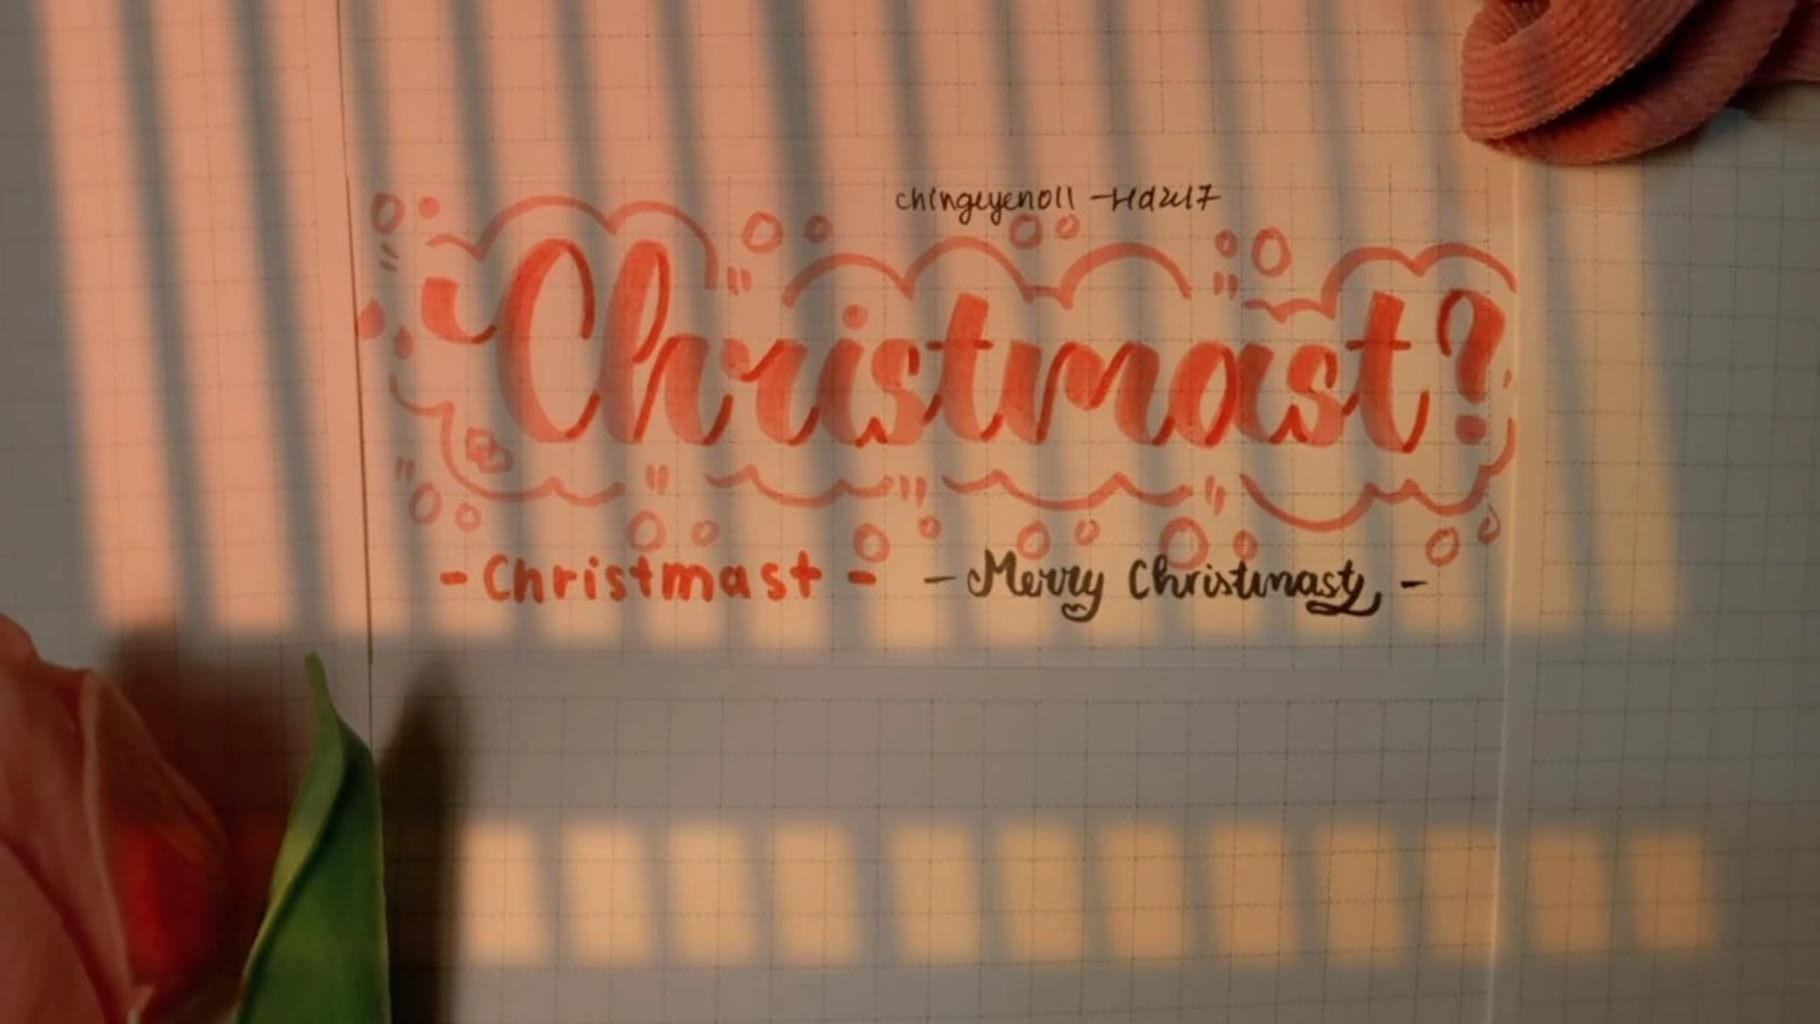 chinguyenoll -Hdzul7
Christmast?
- Christmast - - Merry Christmast -